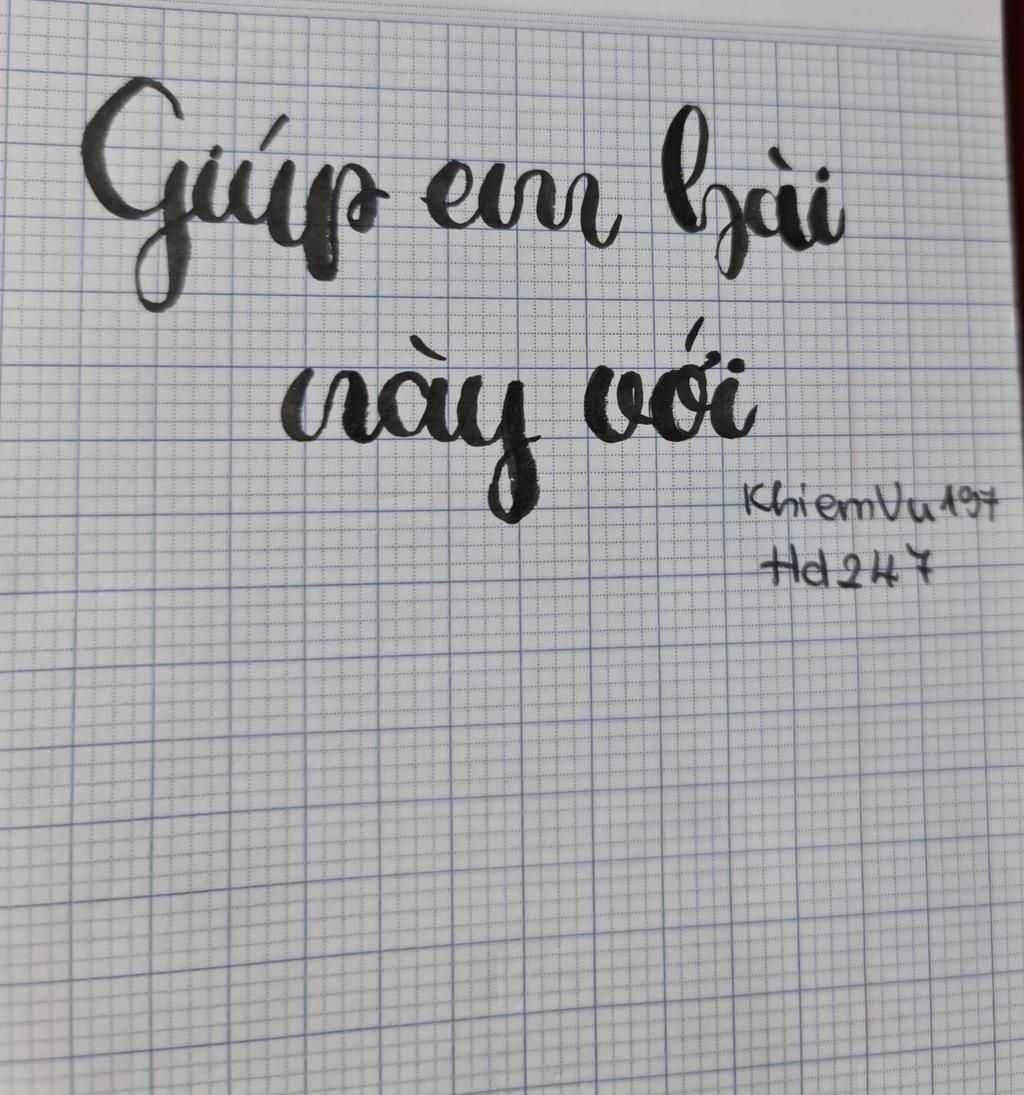 Giúp em bài
này với
KhiemVu197
Hd247